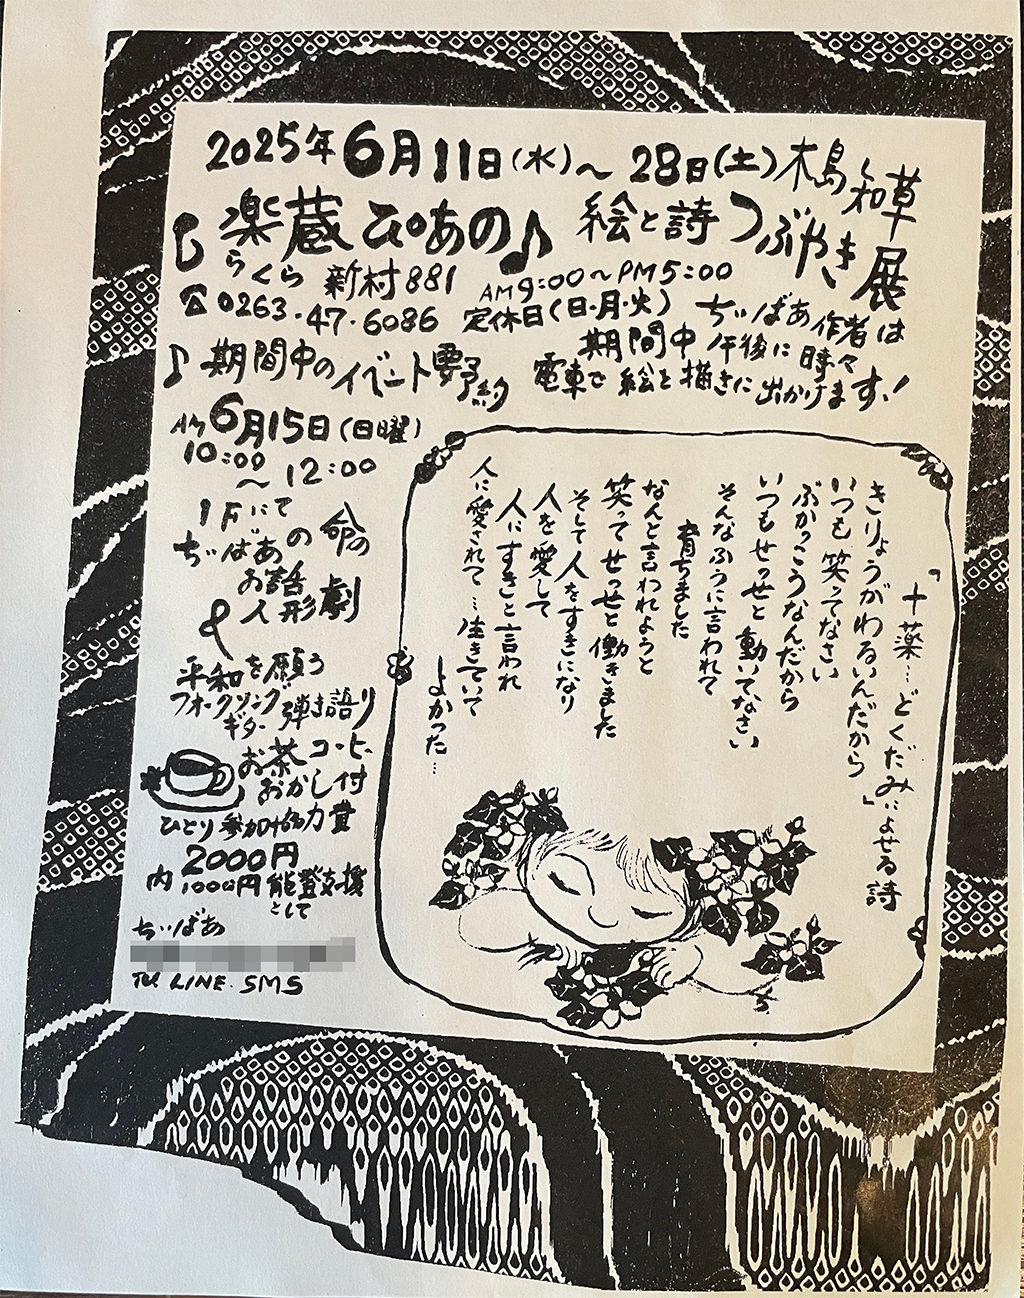 2025年6月11日(水)～28日(土)
木島知草展
絵と詩つぶやき
楽蔵ぴあの♪
らくら 新村881
AM9:00～PM5:00
☎0263・47・6086
定休日(日・月・火)
ちいばあ作者は
期間中 午後に時々
電車で絵を描きに出かけます!
♪期間中のイベント 要予約
AM 6月15日(日曜)
10:00～12:00
1Fにて
ちいばあの命の
お話
人形劇
&
平和を願う
フォークソング
ギター弾き語り
お茶コーヒー
おかし付
ひとり参加協力費
2000円
内1000円能登支援
として
ちいばあ
Tel LINE・SMS
「十薬…どくだみ」によせる詩
きりょうがわるいんだから
いつも笑ってなさい
ぶかっこうなんだから
いつもせっせと動いてなさい
そんなふうに言われて
育ちました
なんと言われようと
笑ってせっせと働きました
そして人をすきになり
人を愛して
人にすきと言われ
人に愛されて…生きていて
よかった…